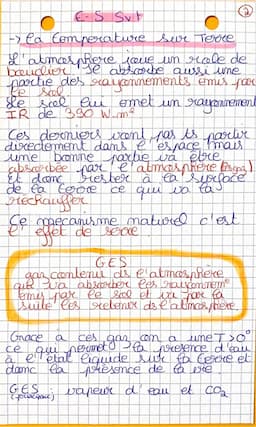 E-S Svt
②
-> la température sur Terre
L'atmosphère joue un rôle de
bouclier. Se absorbe aussi une
partie des rayonnements emis par
le sol
Le sol lui emet un rayonnement
IR de 390 W.m²
Ces derniers vont pas ts partir
directement dans l'espace mais
une bonne partie va être
absorbée par l'atmosphère
et donc rester à la surface
de la terre ce qui va la
rechauffer
Ce mécanisme naturel c'est
l'effet de serre
GES
gaz contenu ds l'atmosphère
qui va absorber les rayonnemt
emis par le sol et va par la
suite les retenir ds l'atmosphère
Grace à ces gaz on a une T>0°
ce qui permet la présence d'eau
à l'état liquide sur la terre et
donc la présence de la vie
GES : vapeur d'eau et CO₂